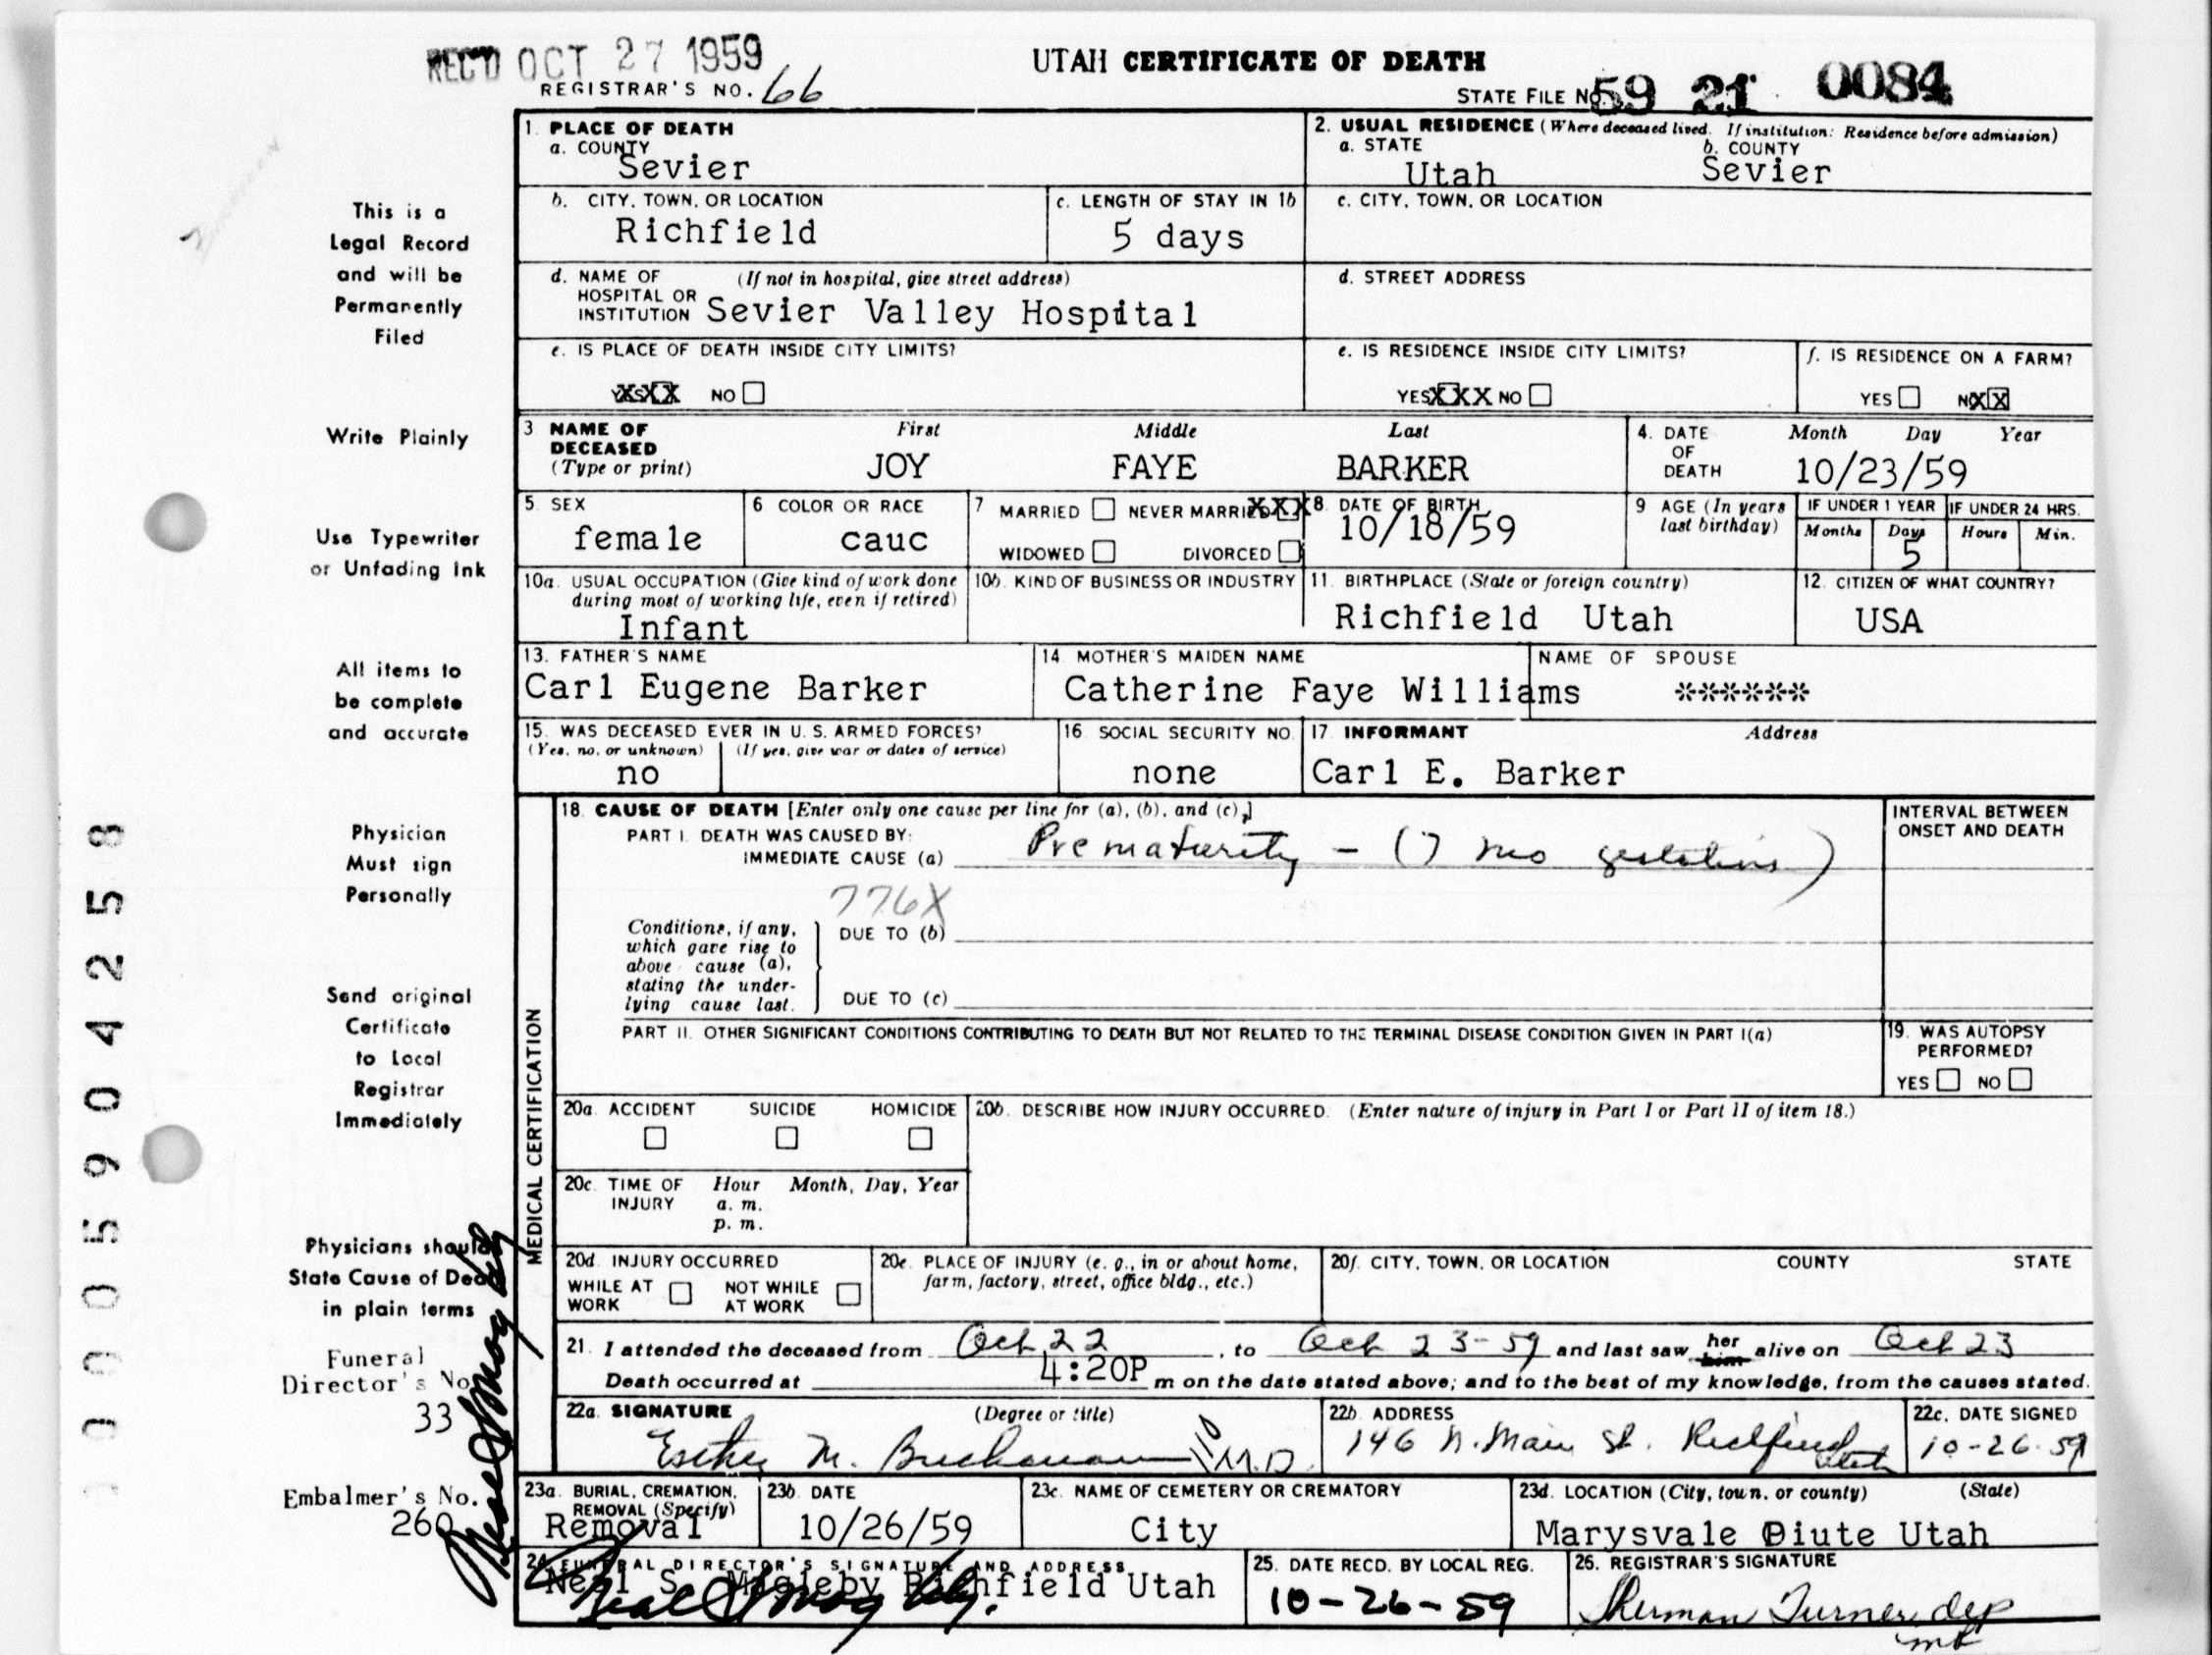 REC'D OCT 27 1959
UTAH CERTIFICATE OF DEATH
REGISTRAR'S NO. 66
STATE FILE NO. 59 21 0084
1. PLACE OF DEATH
a. COUNTY
Sevier
2. USUAL RESIDENCE (Where deceased lived. If institution: Residence before admission)
a. STATE b. COUNTY
Utah Sevier
b. CITY, TOWN, OR LOCATION
Richfield
c. LENGTH OF STAY IN 1b
5 days
c. CITY, TOWN, OR LOCATION
d. NAME OF HOSPITAL OR INSTITUTION (If not in hospital, give street address)
Sevier Valley Hospital
d. STREET ADDRESS
e. IS PLACE OF DEATH INSIDE CITY LIMITS?
YES XXX NO
e. IS RESIDENCE INSIDE CITY LIMITS?
YES XXX NO
f. IS RESIDENCE ON A FARM?
YES NO XX
3 NAME OF DECEASED (Type or print)
First Middle Last
JOY FAYE BARKER
4. DATE OF DEATH Month Day Year
10/23/59
5. SEX
female
6 COLOR OR RACE
cauc
7 MARRIED NEVER MARRIED XXX
WIDOWED DIVORCED
8. DATE OF BIRTH
10/18/59
9 AGE (In years last birthday)
IF UNDER 1 YEAR IF UNDER 24 HRS.
Months Days Hours Min.
5
10a. USUAL OCCUPATION (Give kind of work done during most of working life, even if retired)
Infant
10b. KIND OF BUSINESS OR INDUSTRY
11. BIRTHPLACE (State or foreign country)
Richfield Utah
12. CITIZEN OF WHAT COUNTRY?
USA
13. FATHER'S NAME
Carl Eugene Barker
14 MOTHER'S MAIDEN NAME
Catherine Faye Williams
NAME OF SPOUSE
******
15. WAS DECEASED EVER IN U. S. ARMED FORCES?
(Yes, no, or unknown) (If yes, give war or dates of service)
no
16 SOCIAL SECURITY NO.
none
17. INFORMANT Address
Carl E. Barker
MEDICAL CERTIFICATION
18. CAUSE OF DEATH [Enter only one cause per line for (a), (b), and (c).]
PART I. DEATH WAS CAUSED BY:
IMMEDIATE CAUSE (a) Prematurity - (7 mo gestation)
INTERVAL BETWEEN ONSET AND DEATH
776X
Conditions, if any, which gave rise to above cause (a), stating the underlying cause last.
DUE TO (b)
DUE TO (c)
PART II. OTHER SIGNIFICANT CONDITIONS CONTRIBUTING TO DEATH BUT NOT RELATED TO THE TERMINAL DISEASE CONDITION GIVEN IN PART I(a)
19. WAS AUTOPSY PERFORMED?
YES NO
20a. ACCIDENT SUICIDE HOMICIDE
20b. DESCRIBE HOW INJURY OCCURRED. (Enter nature of injury in Part I or Part II of item 18.)
20c. TIME OF INJURY Hour Month, Day, Year
a. m.
p. m.
20d. INJURY OCCURRED
WHILE AT WORK NOT WHILE AT WORK
20e. PLACE OF INJURY (e. g., in or about home, farm, factory, street, office bldg., etc.)
20f. CITY, TOWN, OR LOCATION COUNTY STATE
21. I attended the deceased from Oct 22, to Oct 23-59 and last saw her him alive on Oct 23
Death occurred at 4:20P m on the date stated above; and to the best of my knowledge, from the causes stated.
22a. SIGNATURE (Degree or title)
Esther M. Buchanan M.D.
22b. ADDRESS
146 N. Main St. Richfield Utah
22c. DATE SIGNED
10-26-59
23a. BURIAL, CREMATION, REMOVAL (Specify)
Removal
23b. DATE
10/26/59
23c. NAME OF CEMETERY OR CREMATORY
City
23d. LOCATION (City, town, or county) (State)
Marysvale Piute Utah
24. FUNERAL DIRECTOR'S SIGNATURE AND ADDRESS
Neal S. Magleby Richfield Utah
Neal S Magleby
25. DATE RECD. BY LOCAL REG.
10-26-59
26. REGISTRAR'S SIGNATURE
Sherman Turner dep
This is a
Legal Record
and will be
Permanently
Filed
Write Plainly
Use Typewriter
or Unfading Ink
All items to
be complete
and accurate
Physician
Must sign
Personally
Send original
Certificate
to Local
Registrar
Immediately
Physicians should
State Cause of Death
in plain terms
Funeral
Director's No.
33
Embalmer's No.
260
Neal S Magleby
0005904258